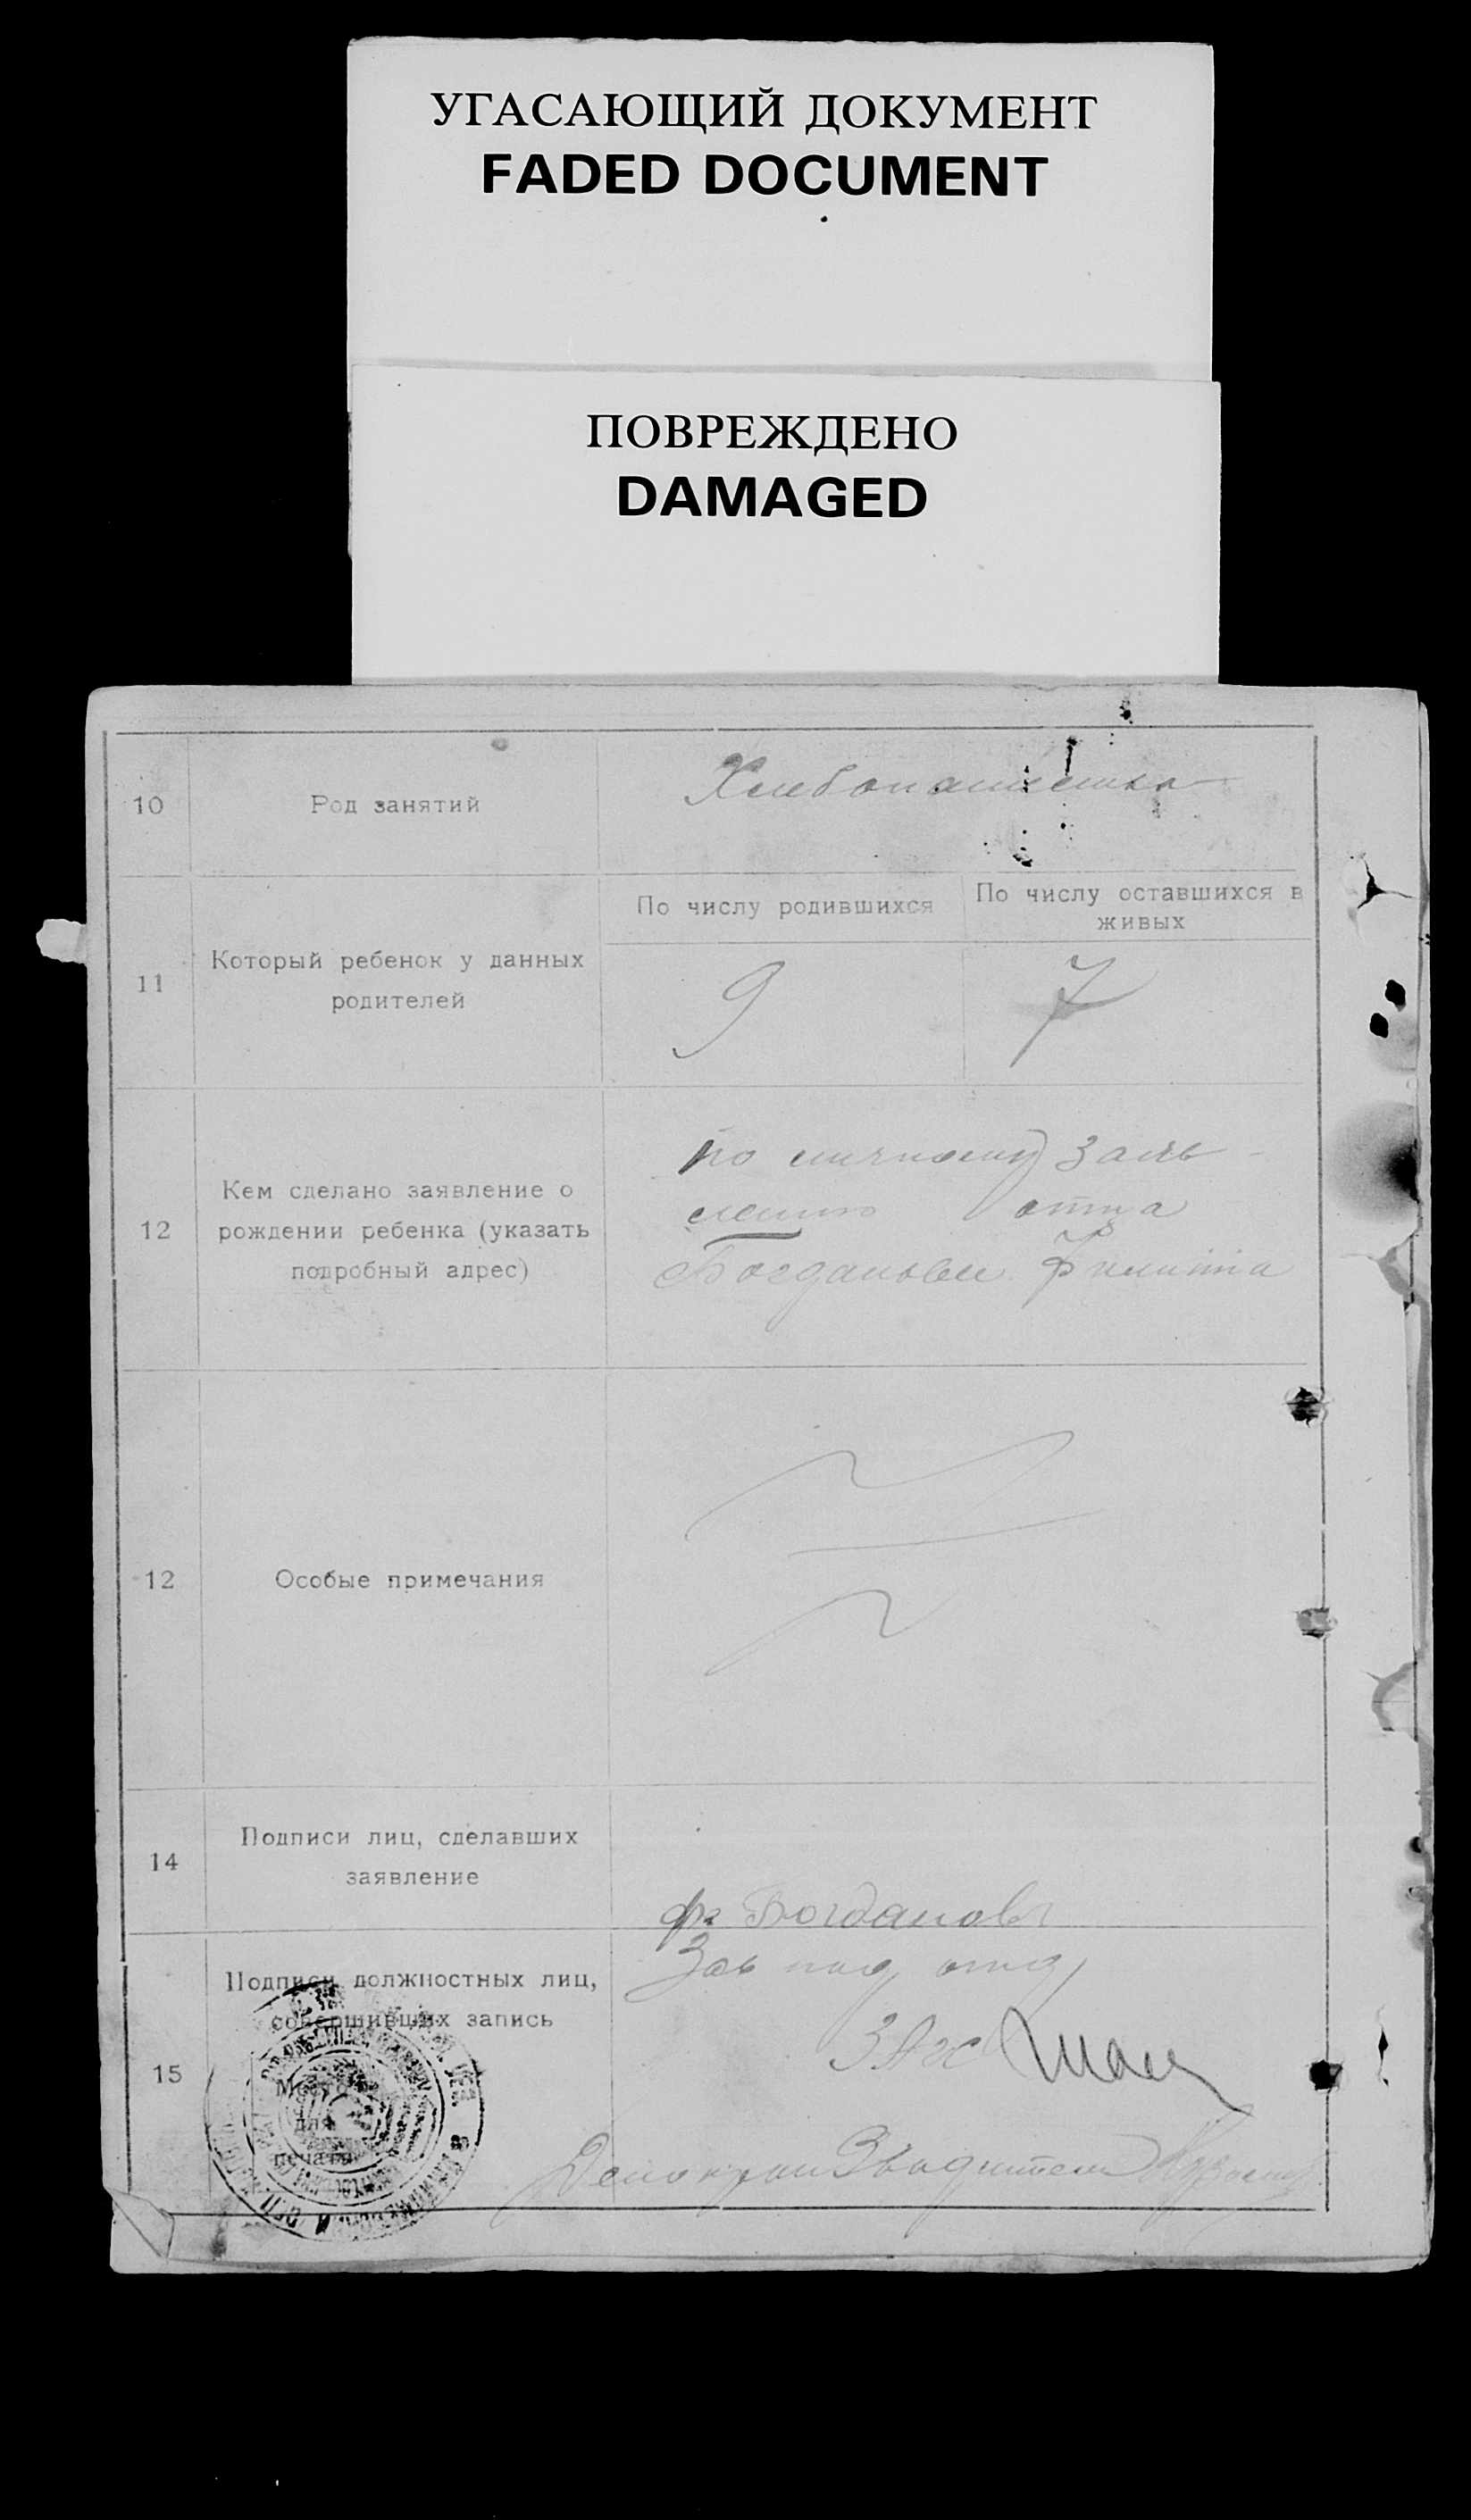 УГАСАЮЩИЙ ДОКУМЕНТ
FADED DOCUMENT
ПОВРЕЖДЕНО
DAMAGED
10
Род занятий
11
Который ребенок у данных
родителей
По числу родившихся
По числу оставшихся в
живых
9
7
12
Кем сделано заявление о
рождении ребенка (указать
подробный адрес)
по личному заяв-
лению отца
Филиппа
12
Особые примечания
14
Подписи лиц, сделавших
заявление
Богданов
15
Подписи должностных лиц,
совершивших запись
Место
для
печати
Зав под отд
ЗАГС